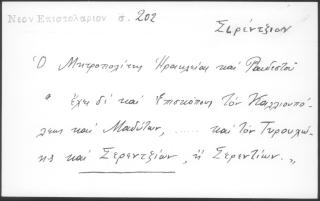 Νεον Επιστολαριον σ. 202
Σερέντζιον
Ὁ Μητροπολίτης Ἡρακλείας καὶ Ραιδεστοῦ
" ἔχει δὲ καὶ Ἐπισκόπους τὸν Καλλιουπό-
λεως καὶ Μαδύτων, ...... καὶ τὸν Τυρολόης
καὶ Σερεντζίων, ἢ Σερεντίων. "